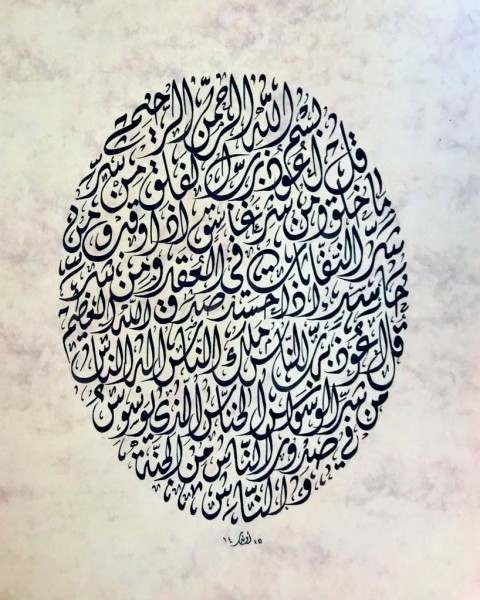 بسم الله الرحمن الرحيم
قل أعوذ برب الفلق من شر
ما خلق ومن شر غاسق إذا وقب ومن
شر النفاثات في العقد ومن شر
حاسد إذا حسد صدق الله العظيم
قل أعوذ برب الناس ملك الناس إله الناس
من شر الوسواس الخناس الذي يوسوس
في صدور الناس من الجنة
والناس